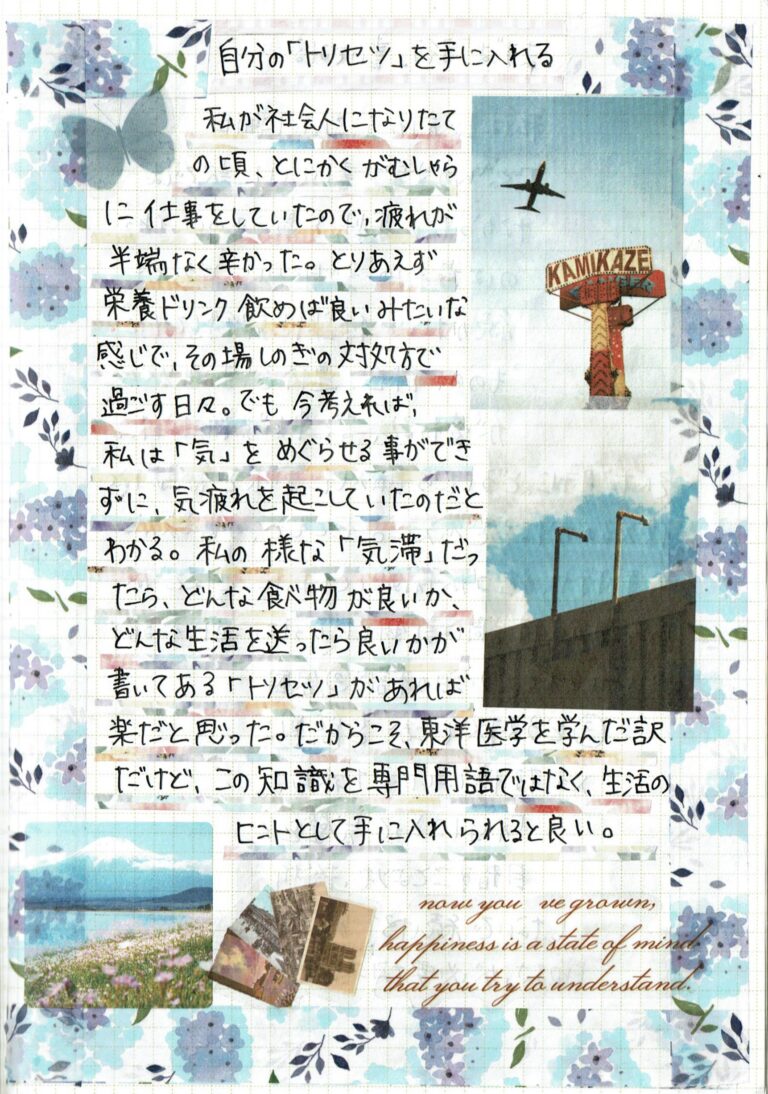 自分の「トリセツ」を手に入れる
私が社会人になりたて
の頃、とにかくがむしゃら
に仕事をしていたので、疲れが
半端なく辛かった。とりあえず
栄養ドリンク飲めば良いみたいな
感じで、その場しのぎの対処方で
過ごす日々。でも今考えれば、
私は「気」をめぐらせる事ができ
ずに、気疲れを起こしていたのだと
わかる。私の様な「気滞」だっ
たら、どんな食べ物が良いか、
どんな生活を送ったら良いかが
書いてある「トリセツ」があれば
楽だと思った。だからこそ、東洋医学を学んだ訳
だけど、この知識を専門用語ではなく、生活の
ヒントとして手に入れられると良い。
KAMIKAZE
now you ve grown,
happiness is a state of mind
that you try to understand.